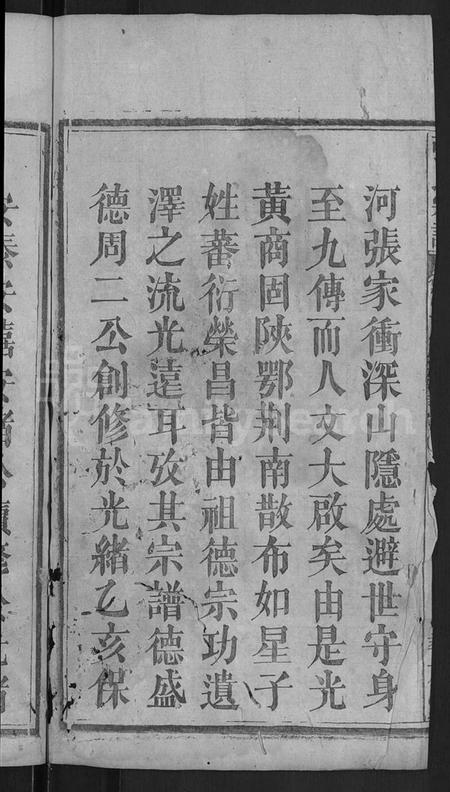 河張家衝深山隱處避世守身
至九傳而人文大啟矣由是光
黃商固陝鄂荆南散布如星子
姓蕃衍榮昌皆由祖德宗功遺
澤之流光遠耳攷其宗譜德盛
德周二公創修於光緒乙亥保